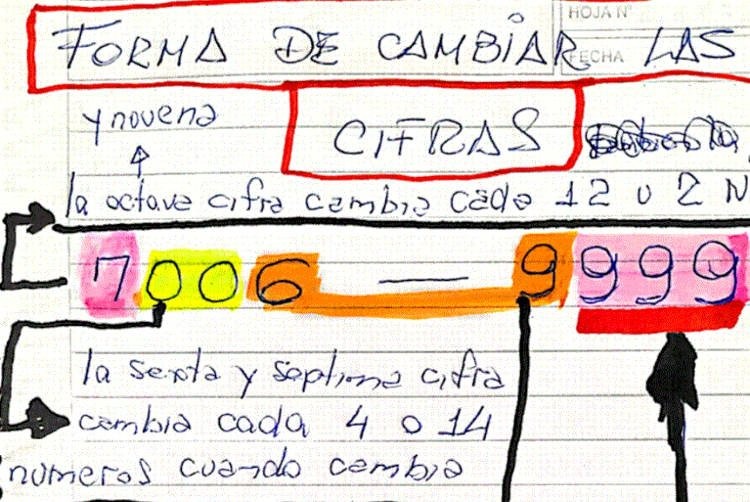 HOJA Nº
FORMA DE CAMBIAR LAS
FECHA
y novena
CIFRAS
la octava cifra cambia cada 12 o 2 N
7 0 0 6 — 9 9 9 9
la sexta y septima cifra
cambia cada 4 o 14
numeros cuando cambia